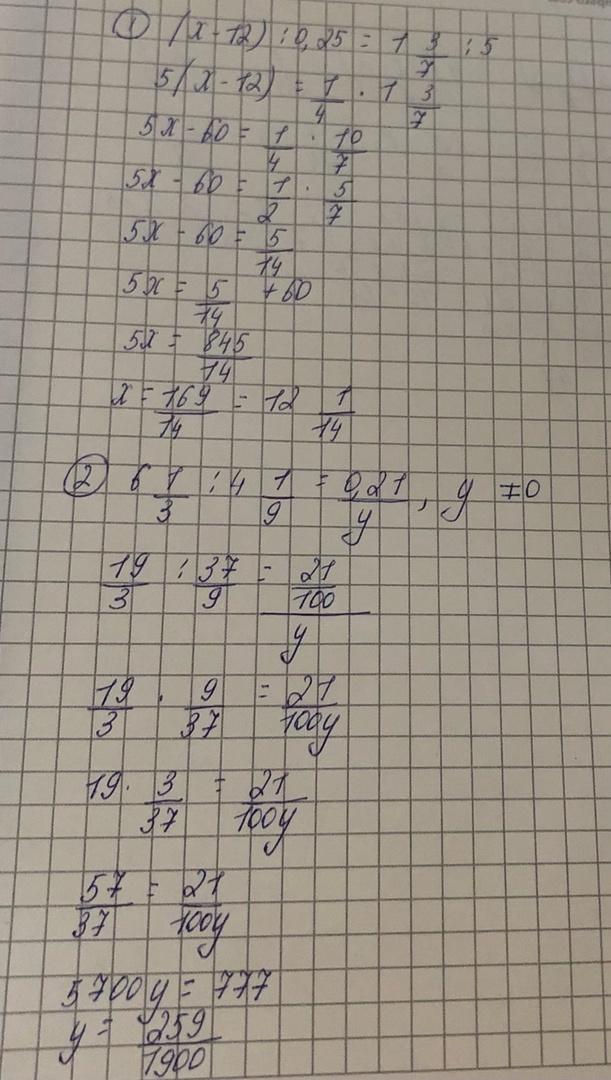 ① (x - 12) : 0,25 = 1 3/7 : 5
5(x - 12) = 1/4 · 1 3/7
5x - 60 = 1/4 · 10/7
5x - 60 = 1/2 · 5/7
5x - 60 = 5/14
5x = 5/14 + 60
5x = 845/14
x = 169/14 = 12 1/14
② 6 1/3 : 4 1/9 = 0,21/y, y ≠ 0
19/3 : 37/9 = (21/100)/y
19/3 · 9/37 = 21/100y
19 · 3/37 = 21/100y
57/37 = 21/100y
5700y = 777
y = 259/1900